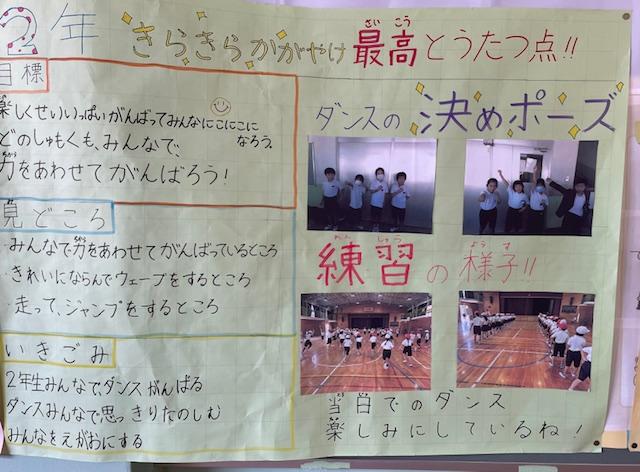 2年 きらきらかがやけ最高とうたつ点!!
ざい こう
目標
楽しくせいいっぱいがんばってみんなにこにこに
なろう。
どのしゅもくも、みんなで、
力をあわせてがんばろう!
見どころ
・みんなで力をあわせてがんばっているところ
・きれいにならんでウェーブをするところ
・走って、ジャンプをするところ
いきごみ
2年生みんなで、ダンスがんばる
ダンスみんなで思っきりたのしむ
みんなをえがおにする
ダンスの決めポーズ
れん しゅう
よう す
練習の様子!!
当日でのダンス
楽しみにしているね!